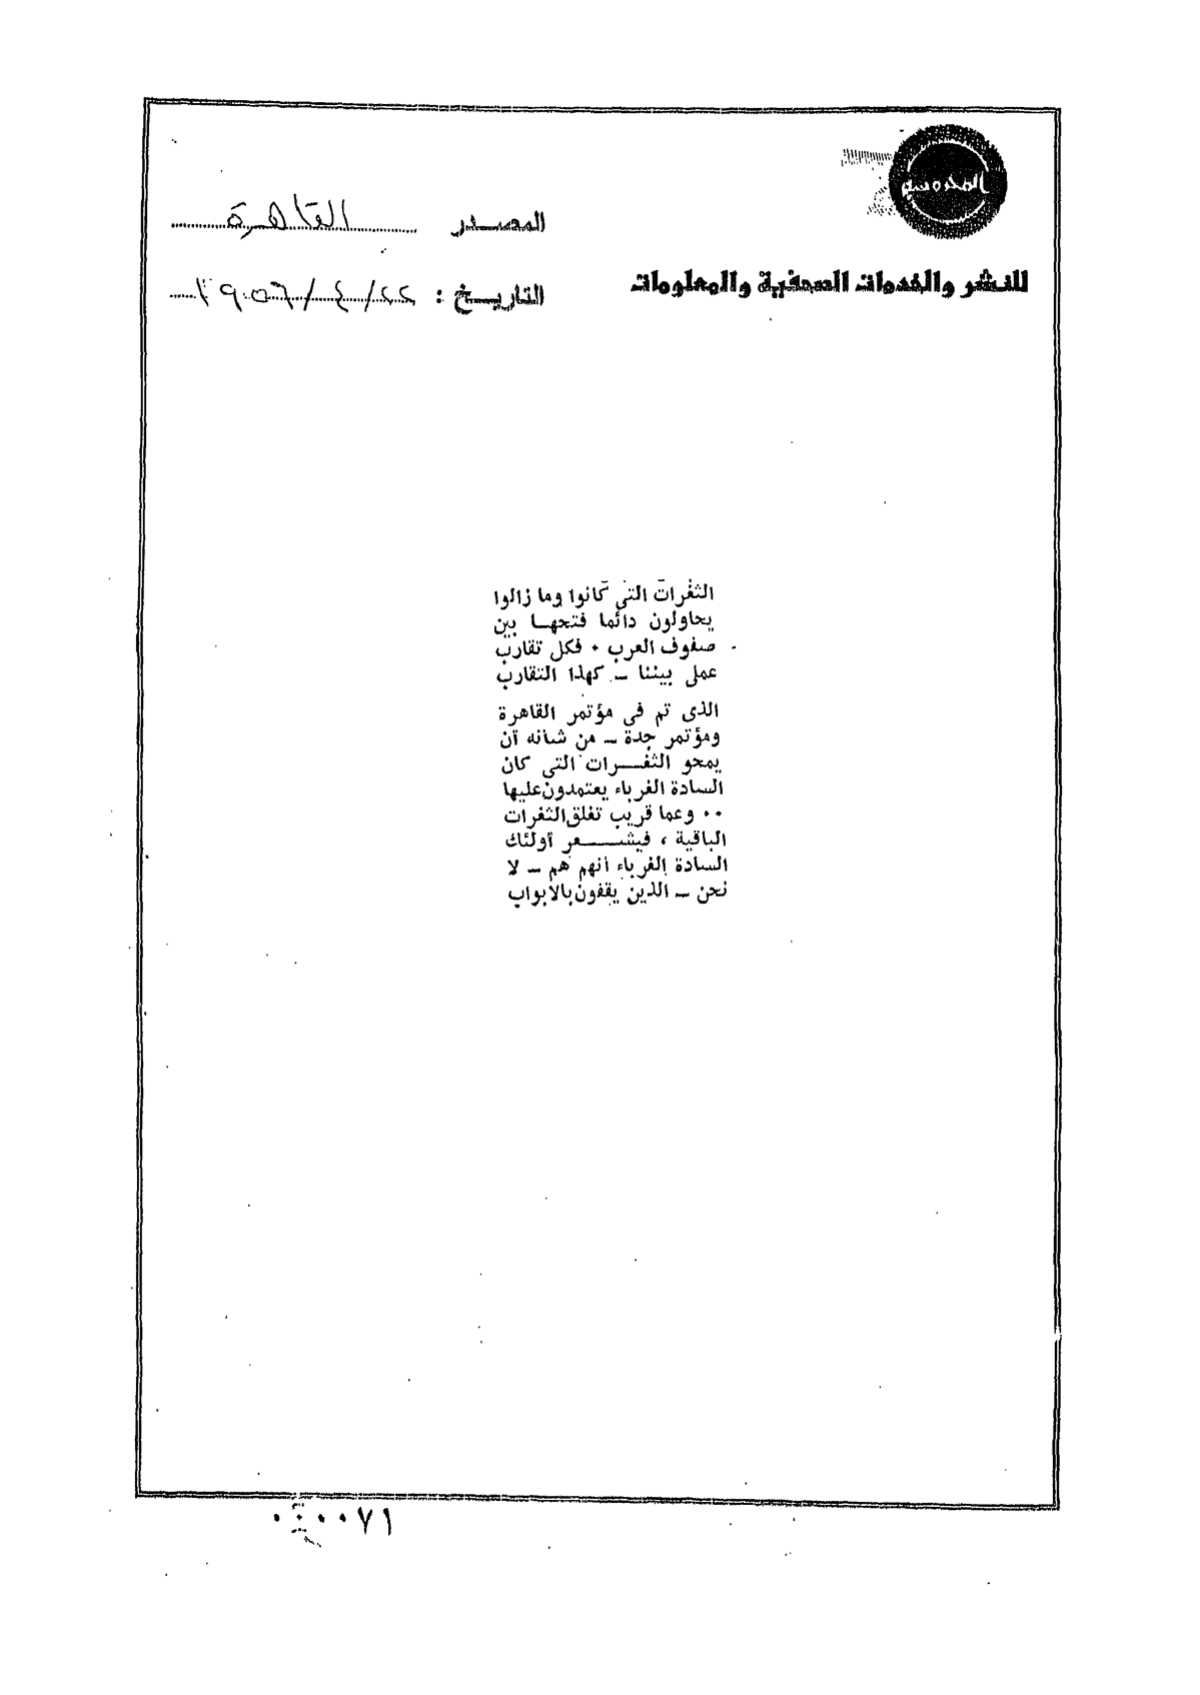 المحروسة
للنشر والخدمات الصحفية والمعلومات
المصدر القاهرة
التاريخ : ٢٢/٤/١٩٥٦
الثغرات التى كانوا وما زالوا
يحاولون دائما فتحها بين
صفوف العرب ٠ فكل تقارب
عملى بيننا ـ كهذا التقارب
الذى تم فى مؤتمر القاهرة
ومؤتمر جدة ـ من شأنه أن
يمحو الثغرات التى كان
السادة الغرباء يعتمدون عليها
٠٠ وعما قريب تغلق الثغرات
الباقية ، فيشعر أولئك
السادة الغرباء أنهم هم ـ لا
نحن ـ الذين يقفون بالابواب